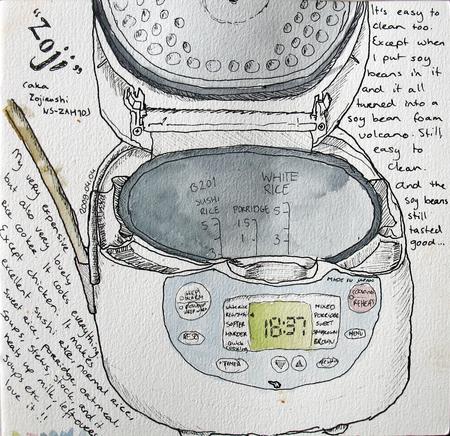 "Zoji"
(aka
Zojirushi
NS-ZAH10)
2009.04.04
My very expensive
but also very lovely
rice cooker. It cooks everything
except chicken. It makes
excellent sushi rice, normal rice,
sweet rice, porridge, oatmeal,
soups, stews, stock, and it
heats up milk, leftovers,
soups etc!! I
love it!!
It's easy to
clean too.
Except when
I put soy
beans in it
and it all
turned into a
soy bean foam
volcano. Still
easy to
clean.
And the
soy beans
still
tasted
good...
B201
WHITE
RICE
SUSHI
RICE
PORRIDGE
5
5
1.5
1
3
3
MADE IN JAPAN
KEEP
WARM
REHEAT
COOKING
RESET
TIMER
REGULAR
SOFTER
HARDER
QUICK
COOKING
18:37
MIXED
PORRIDGE
SWEET
BROWN
MENU